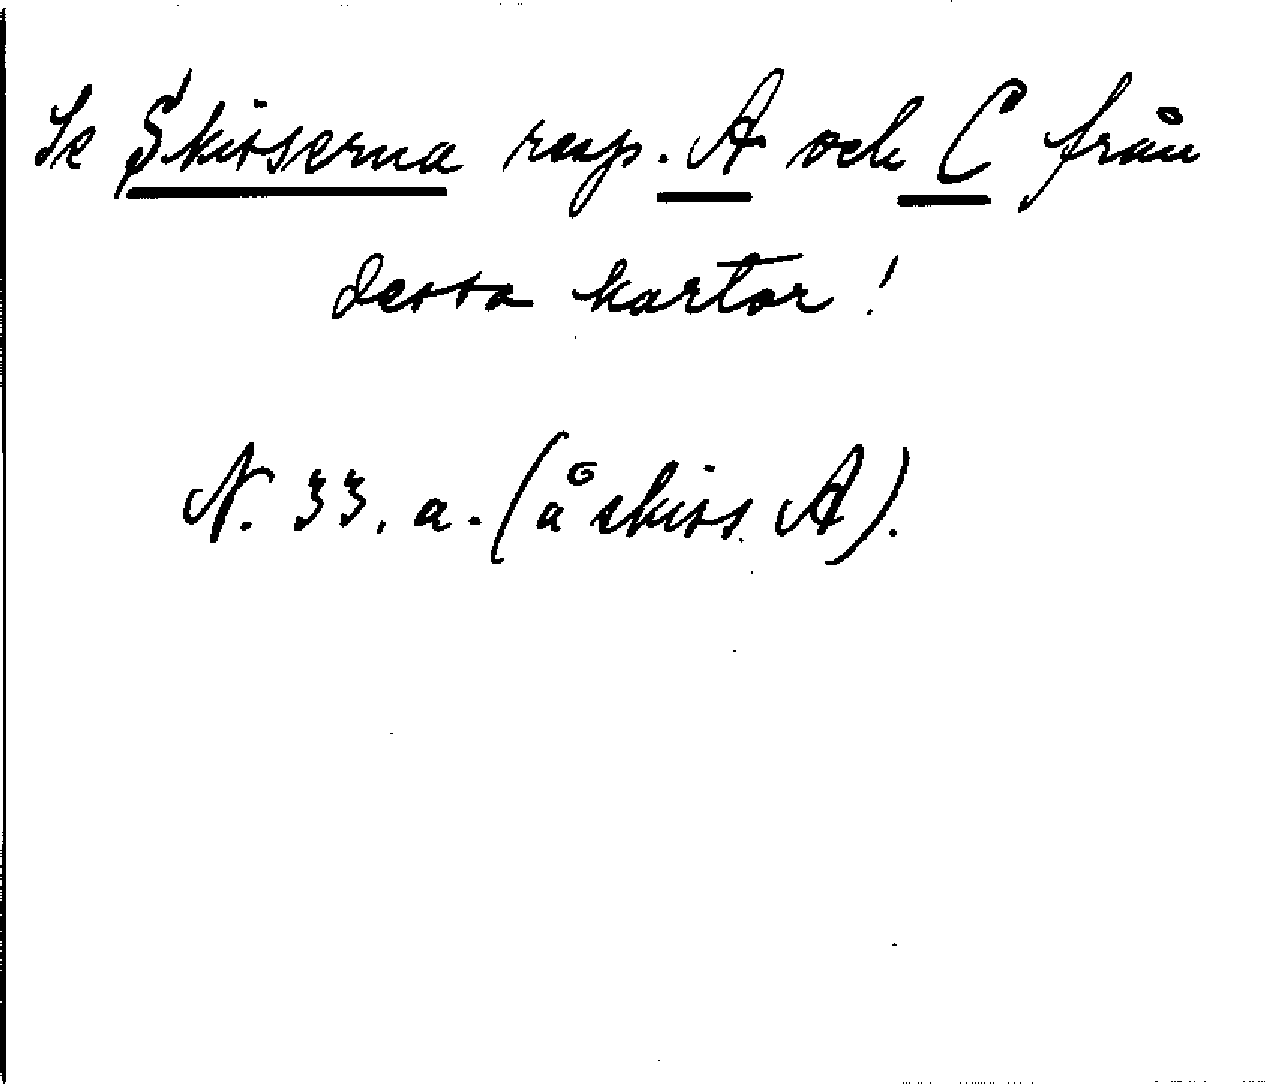 Se Skisserna resp. A och C från
dessa kartor!
N. 33. a. (å skiss A).